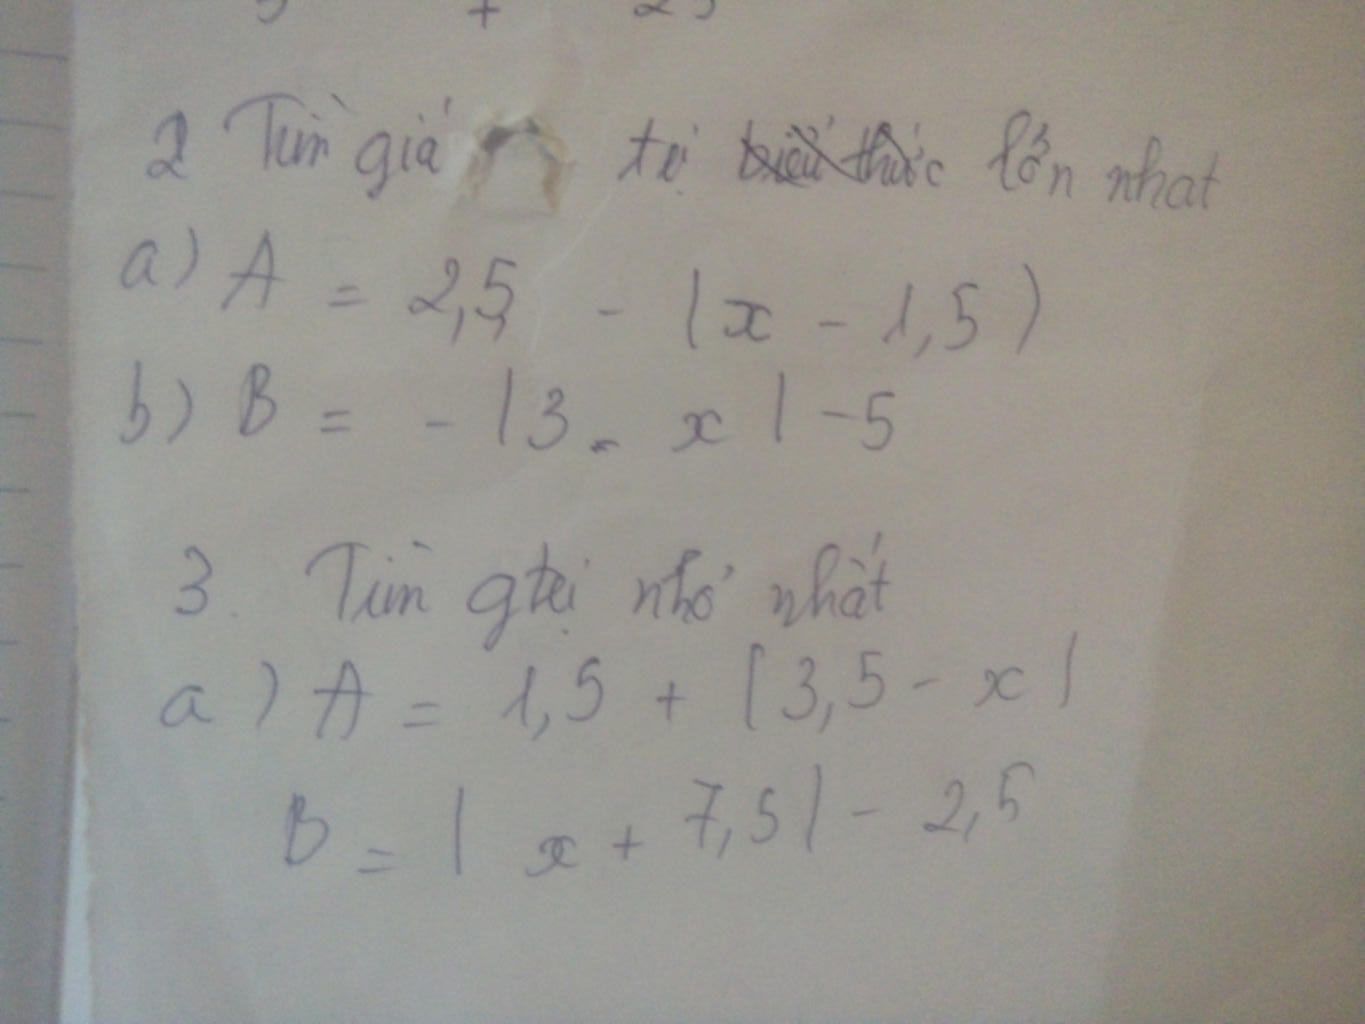 2 Tìm giá trị lớn nhat
a) A = 2,5 - |x - 1,5)
b) B = - |3 - x| - 5
3. Tìm gtrị nhỏ nhất
a) A = 1,5 + |3,5 - x|
B = | x + 7,5| - 2,5